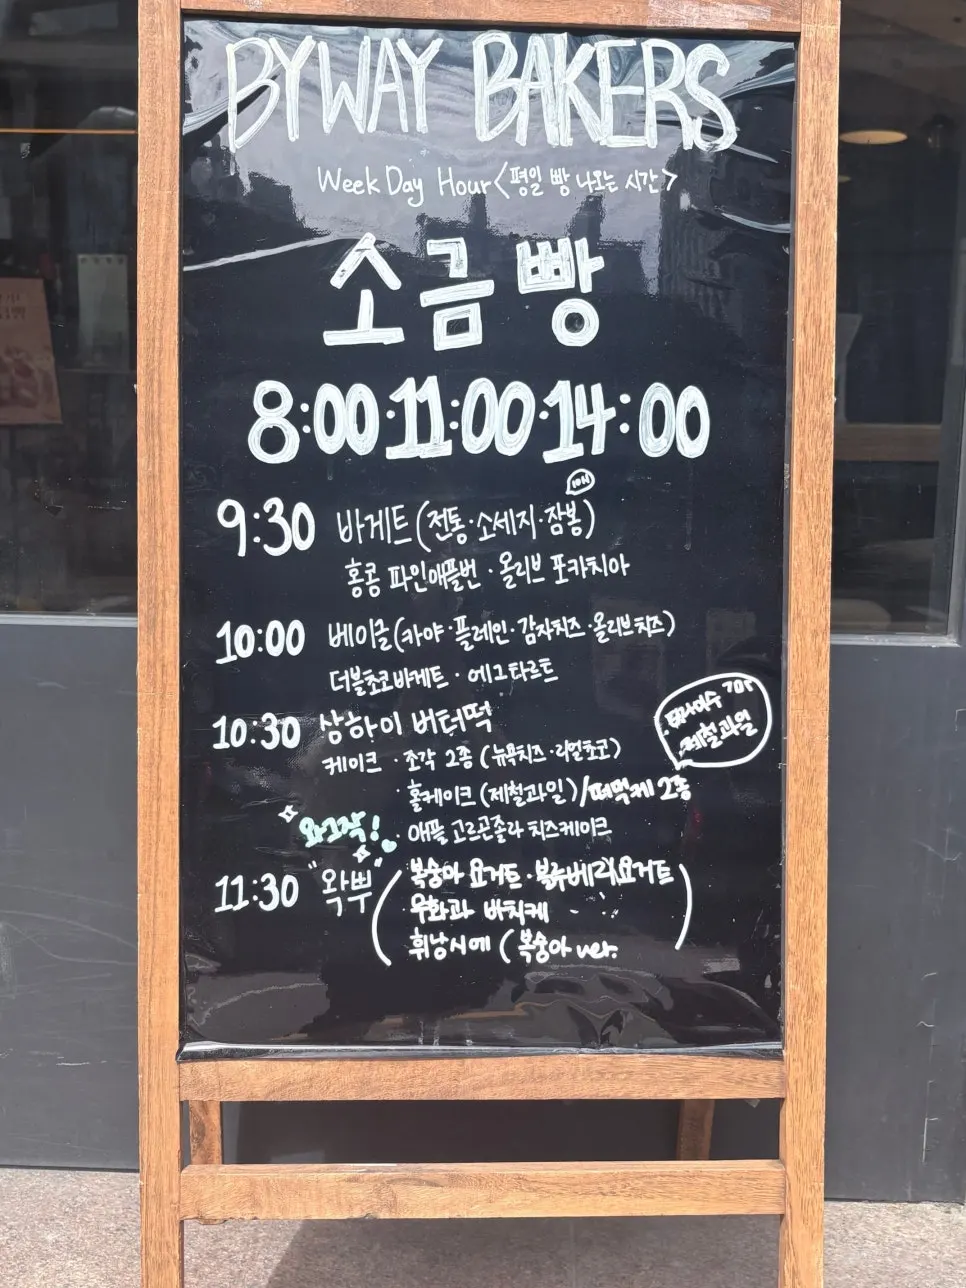 BYWAY BAKERS
Week Day Hour <평일 빵 나오는 시간>
소금빵
8:00·11:00·14:00
9:30 바게트(전통·소세지·잠봉)
홍콩 파인애플번·올리브 포카치아
10:00 베이글(카야·플레인·감자치즈·올리브치즈)
더블초코바게트·에그타르트
10:30 상하이 버터떡
제철과일
케이크·조각 2종(뉴욕치즈·리얼초코)
·홀케이크(제철과일)/떠먹케 2종
와그작!
·애플 고르곤졸라 치즈케이크
11:30 "왁뿌" (복숭아 요거트·블루베리요거트
무화과 바치케
휘낭시에 (복숭아 ver.)